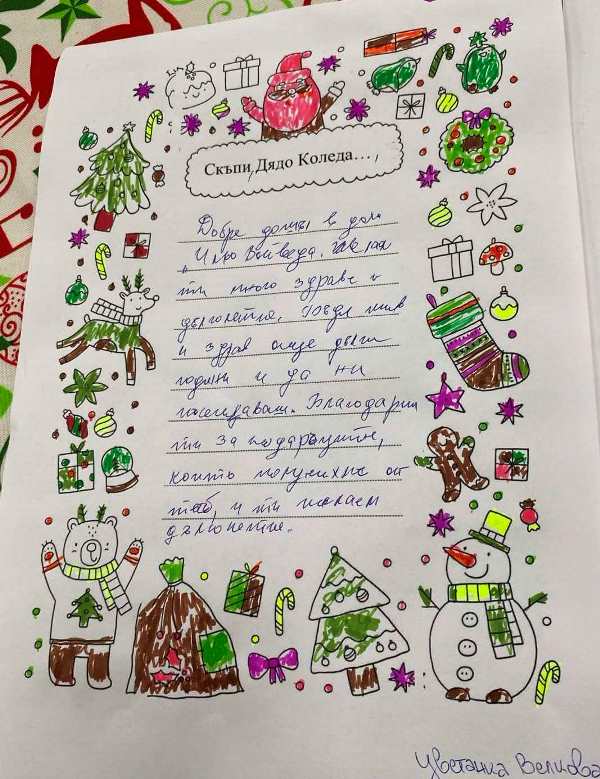 Скъпи, Дядо Коледа...,
Добре дошъл в дом
„Илю Войвода. Желая
ти много здраве и
дълголетие, бъди жив
и здрав още дълги
години и да ни
посещаваш. Благодарим
ти за подаръците,
които получихме от
теб, и ти желаем
дълголетие.
Цветанка Велкова